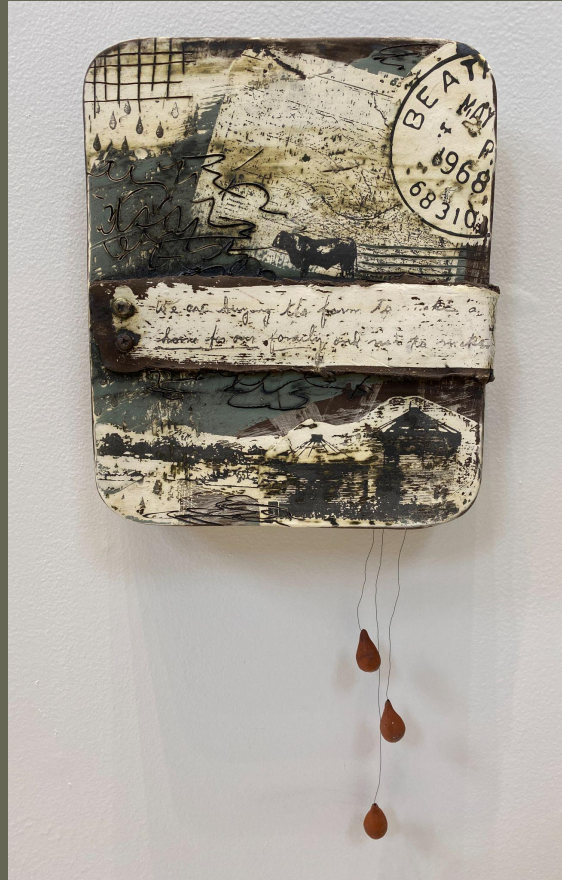 BEAT
MAY
1968
68310
We are buying the farm to make a
home for our family and